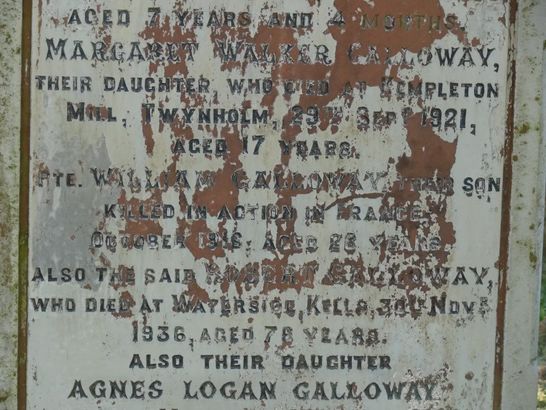 AGED 7 YEARS AND 4 MONTHS.
MARGARET WALKER GALLOWAY,
THEIR DAUGHTER, WHO DIED AT KEMPLETON
MILL, TWYNHOLM, 29TH SEPT 1921,
AGED 17 YEARS.
PTE. WILLIAM GALLOWAY, THEIR SON
KILLED IN ACTION IN FRANCE
OCTOBER AGED YEARS
ALSO THE SAID ROBERT GALLOWAY,
WHO DIED AT WATERSIDE, KELLS, 30TH NOVR
1936, AGED 78 YEARS.
ALSO THEIR DAUGHTER
AGNES LOGAN GALLOWAY